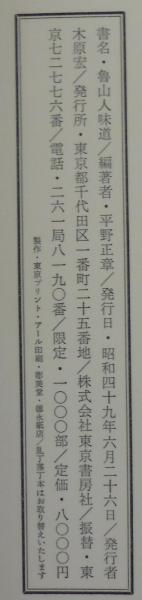 書名・魯山人味道／編著者・平野正章／発行日・昭和四十九年六月二十六日／発行者
木原宏／発行所・東京都千代田区一番町二十五番地／株式会社東京書房社／振替・東
京七二七七六番／電話・二六一局八一九〇番／限定・一〇〇〇部／定価・八〇〇〇円
製作・東京プリント・アール印刷・彫美堂・德永紙店／乱丁落丁本はお取り替えいたします